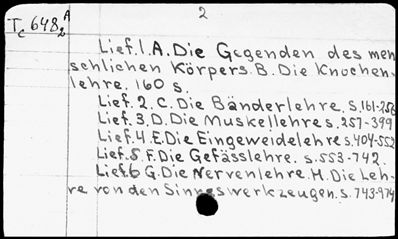 2
Tc 648 A 2
Lief. 1. A. Die Gegenden des men
schlichen Körpers. B. Die Knochen-
lehre. 160 s.
Lief. 2. C. Die Bänderlehre. S. 161-256
Lief. 3. D. Die Muskellehre s. 257-399
Lief. 4. E. Die Eingeweidelehre s. 404-552
Lief. 5. F. Die Gefässlehre. s. 553-742.
Lief. 6 G. Die Nervenlehre. H. Die Leh-
re von den Sinneswerkzeugen. s. 743-974